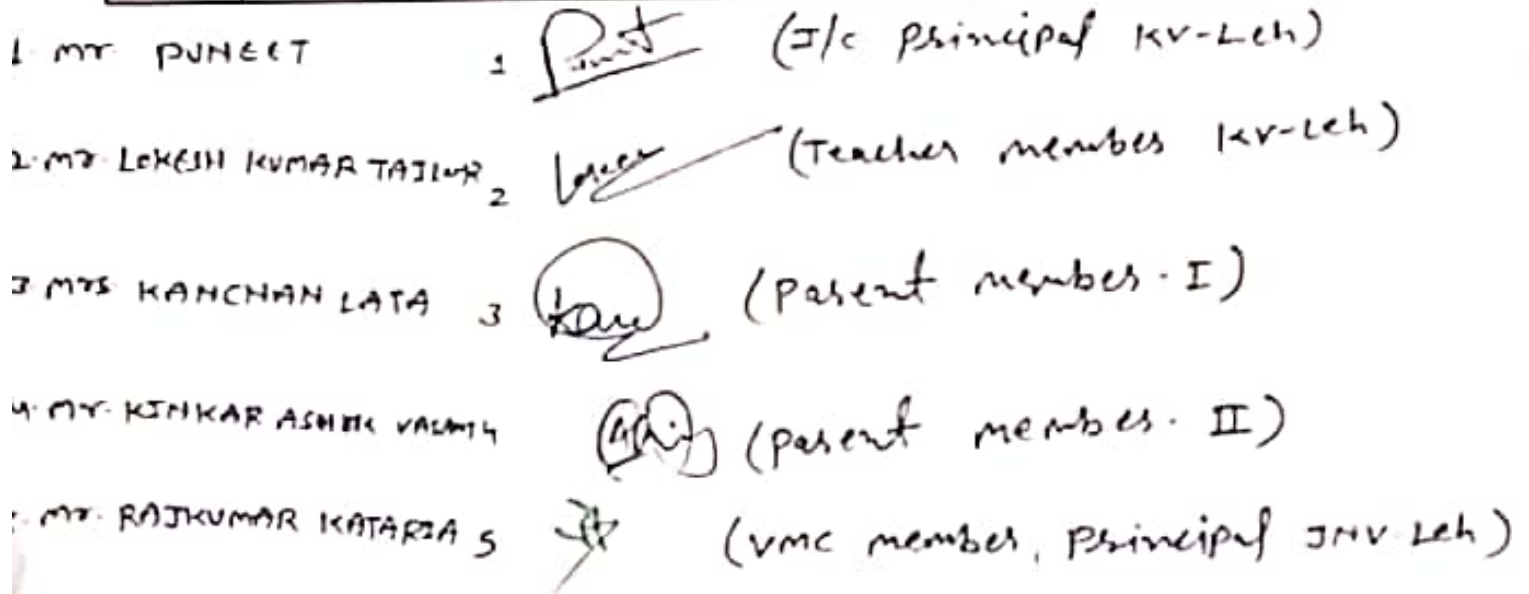 1 Mr PUNEET 1 (I/c Principal KV-Leh)
2. Mr. LOKESH KUMAR TAILOR 2 (Teacher member KV-Leh)
3 Mrs KANCHAN LATA 3 (Parent member. I)
4. Mr. KINKAR ASHOK 4 (Parent member. II)
Mr. RAJKUMAR KATARIA 5 (VMC member, Principal JNV Leh)